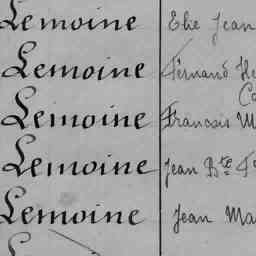 Lemoine Elie Jean
Lemoine Fernand
Lemoine Francois
Lemoine Jean Bte
Lemoine Jean